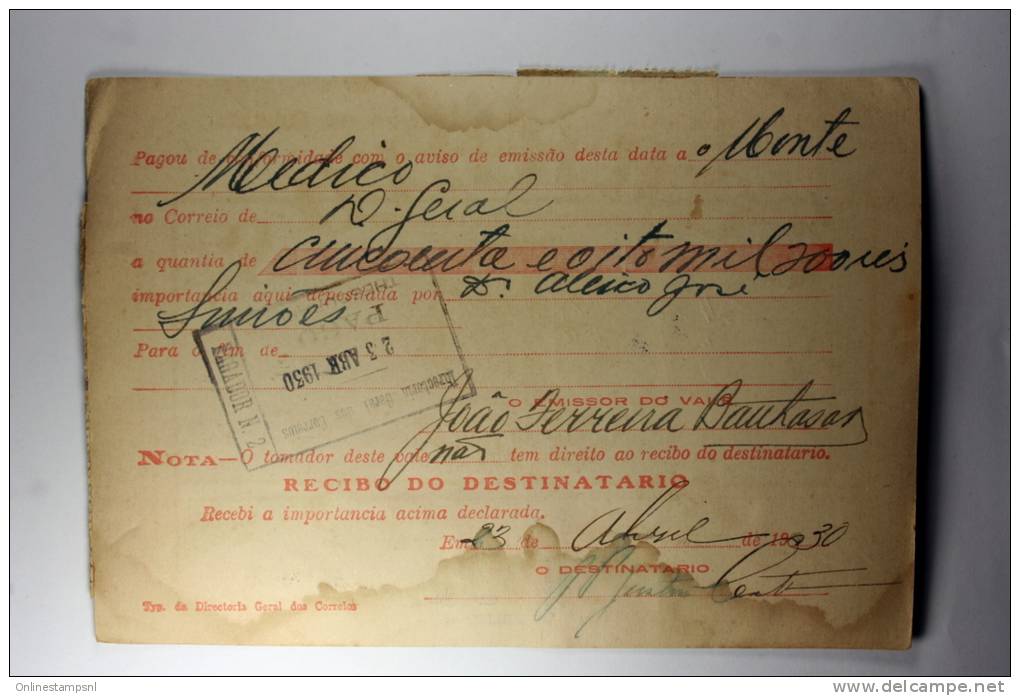 Pagou de conformidade com o aviso de emissão desta data a o Monte
Medico
no Correio de D. Geral
a quantia de cincoenta e oito mil 200 reis
importancia aqui depositada por D. José
Simões
Para o fim de
O EMISSOR DO VALE
João Ferreira
NOTA—O tomador deste vale não tem direito ao recibo do destinatario.
RECIBO DO DESTINATARIO
Recebi a importancia acima declarada.
Em 23 de Abril de 1930
O DESTINATARIO
Typ. da Directoria Geral dos Correios
Directoria Geral dos Correios
23 ABR 1930
PAGADOR N. 2
Onlinestampsnl
www.delcampe.net